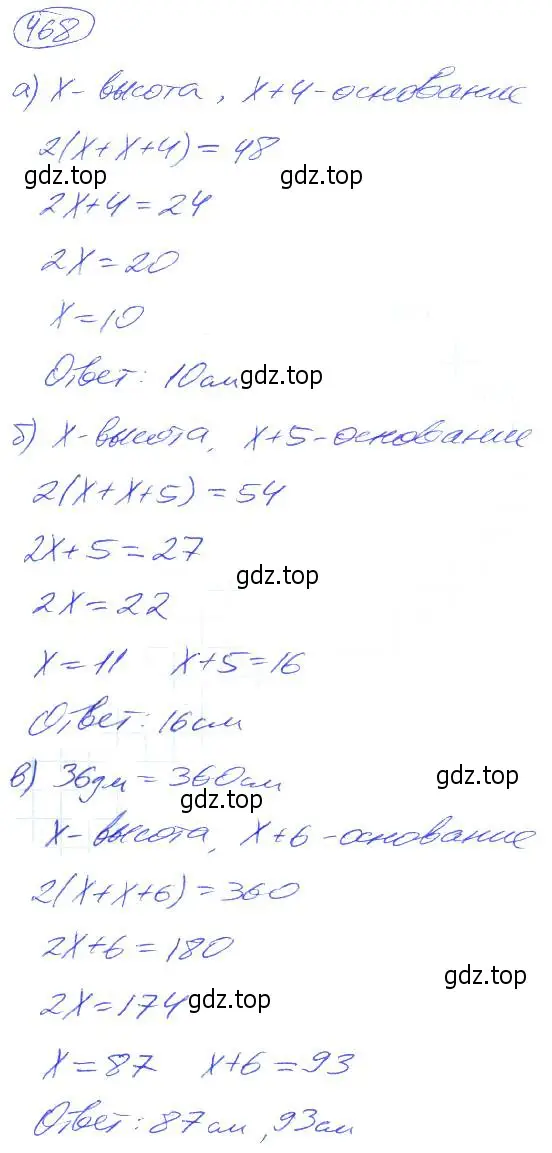 468
а) x - высота, x+4 - основание
2(x+x+4) = 48
gdz.top gdz.top
2x+4 = 24
2x = 20
x = 10
Ответ: 10см
gdz.top
б) x - высота, x+5 - основание
2(x+x+5) = 54
2x+5 = 27
gdz.top
2x = 22
x = 11 x+5 = 16
Ответ: 16см
в) 36дм = 360см
gdz.top
gdz.top
x - высота, x+6 - основание
2(x+x+6) = 360
2x+6 = 180
gdz.top
2x = 174
gdz.top
x = 87 x+6 = 93
Ответ: 87см, 93см